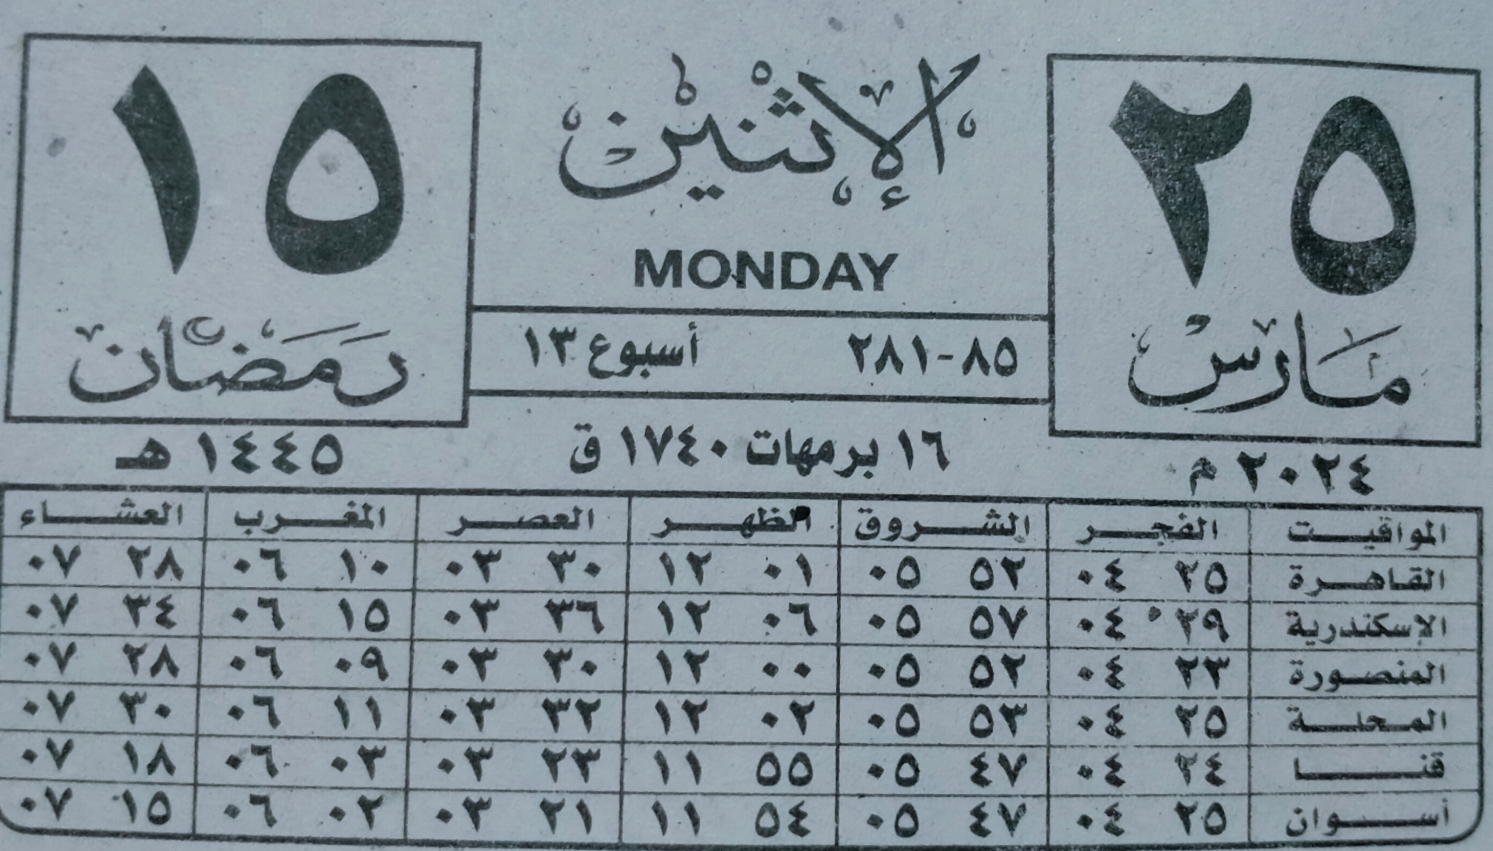 ٢٥
مَارس
٢٠٢٤ م
الإثنين
MONDAY
٨٥-٢٨١ أسبوع ١٣
١٦ برمهات ١٧٤٠ ق
١٥
رَمَضَان
١٤٤٥ هـ
المواقيت الفجر الشروق الظهر العصر المغرب العشاء
القاهرة ٢٥ ٠٤ ٥٢ ٠٥ ٠١ ١٢ ٣٠ ٠٣ ١٠ ٠٦ ٢٨ ٠٧
الإسكندرية ٢٩ ٠٤ ٥٧ ٠٥ ٠٦ ١٢ ٣٦ ٠٣ ١٥ ٠٦ ٣٤ ٠٧
المنصورة ٢٣ ٠٤ ٥٢ ٠٥ ٠٠ ١٢ ٣٠ ٠٣ ٠٩ ٠٦ ٢٨ ٠٧
المحلة ٢٥ ٠٤ ٥٣ ٠٥ ٠٢ ١٢ ٣٢ ٠٣ ١١ ٠٦ ٣٠ ٠٧
قنا ٢٤ ٠٤ ٤٧ ٠٥ ٥٥ ١١ ٢٣ ٠٣ ٠٣ ٠٦ ١٨ ٠٧
أسوان ٢٥ ٠٤ ٤٧ ٠٥ ٥٤ ١١ ٢١ ٠٣ ٠٢ ٠٦ ١٥ ٠٧